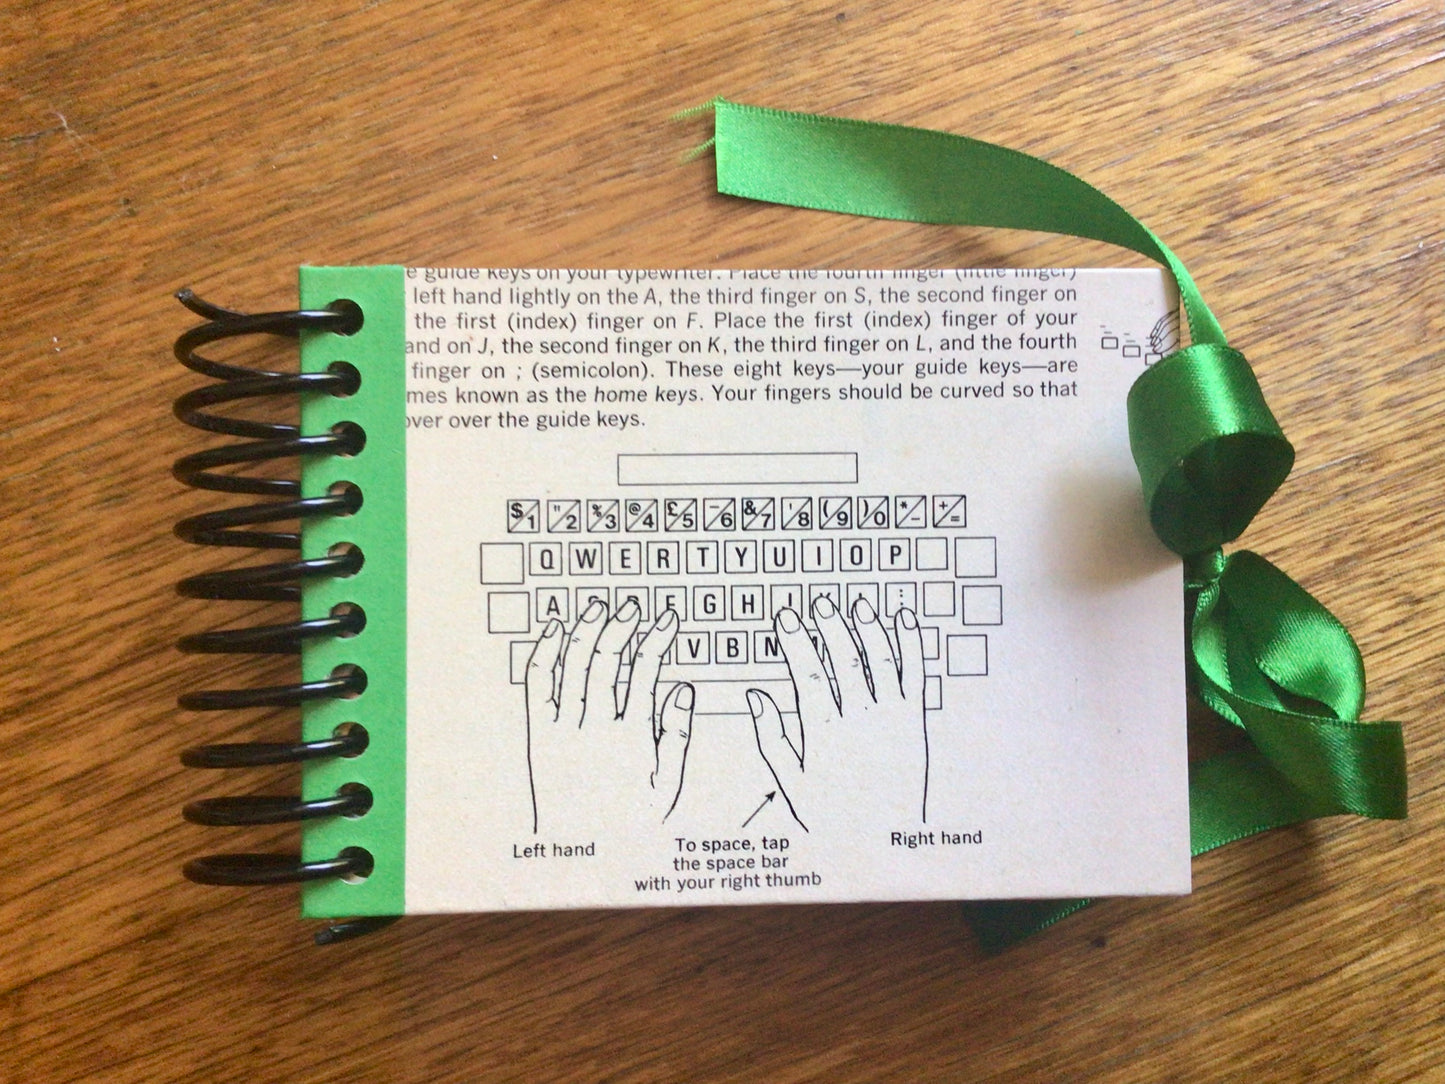 e guide keys on your typewriter. Place the fourth finger (little finger)
left hand lightly on the A, the third finger on S, the second finger on
the first (index) finger on F. Place the first (index) finger of your
and on J, the second finger on K, the third finger on L, and the fourth
finger on ; (semicolon). These eight keys—your guide keys—are
mes known as the home keys. Your fingers should be curved so that
over over the guide keys.
$ 1 " 2 % 3 @ 4 £ 5 _ 6 & 7 ' 8 ( 9 ) 0 * - + =
Q W E R T Y U I O P
A S D F G H J K L : ;
V B N M
Left hand
To space, tap
the space bar
with your right thumb
Right hand